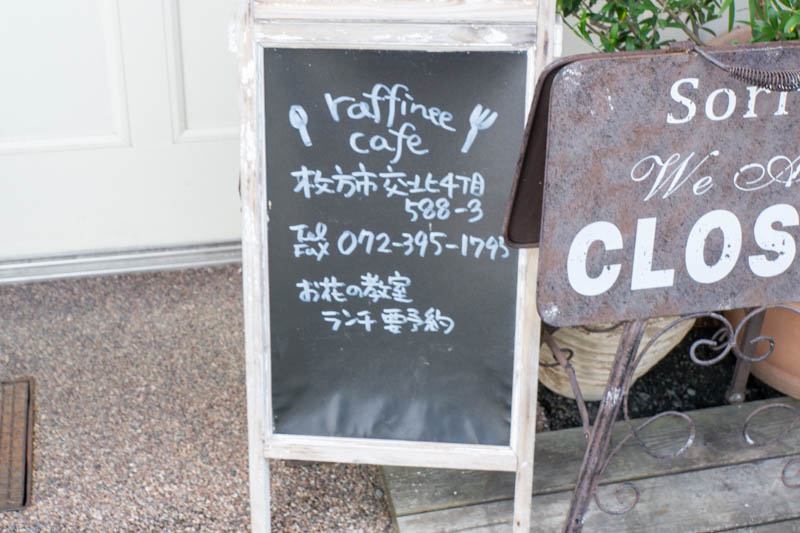 raffinee
cafe
枚方市交北4丁目
588-3
Tel
Fax 072-395-1745
お花の教室
ランチ要予約
Sorr
We A
CLOS